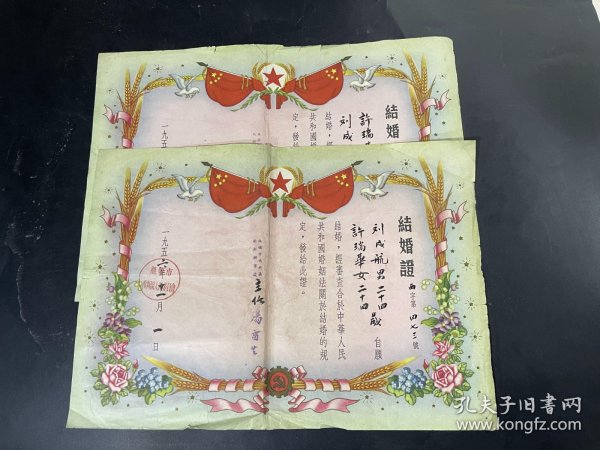 結婚
許瑞
刘成
結婚，經
共和國婚
定，發給
一九五
結婚證
字第四七三號
刘成航男二十四歲
許瑞華女二十四
自願
結婚，經審查合於中華人民
共和國婚姻法關於結婚的規
定，發給此證。
主任
一九五六年十一月一日
孔夫子旧书网
www.kongfz.com